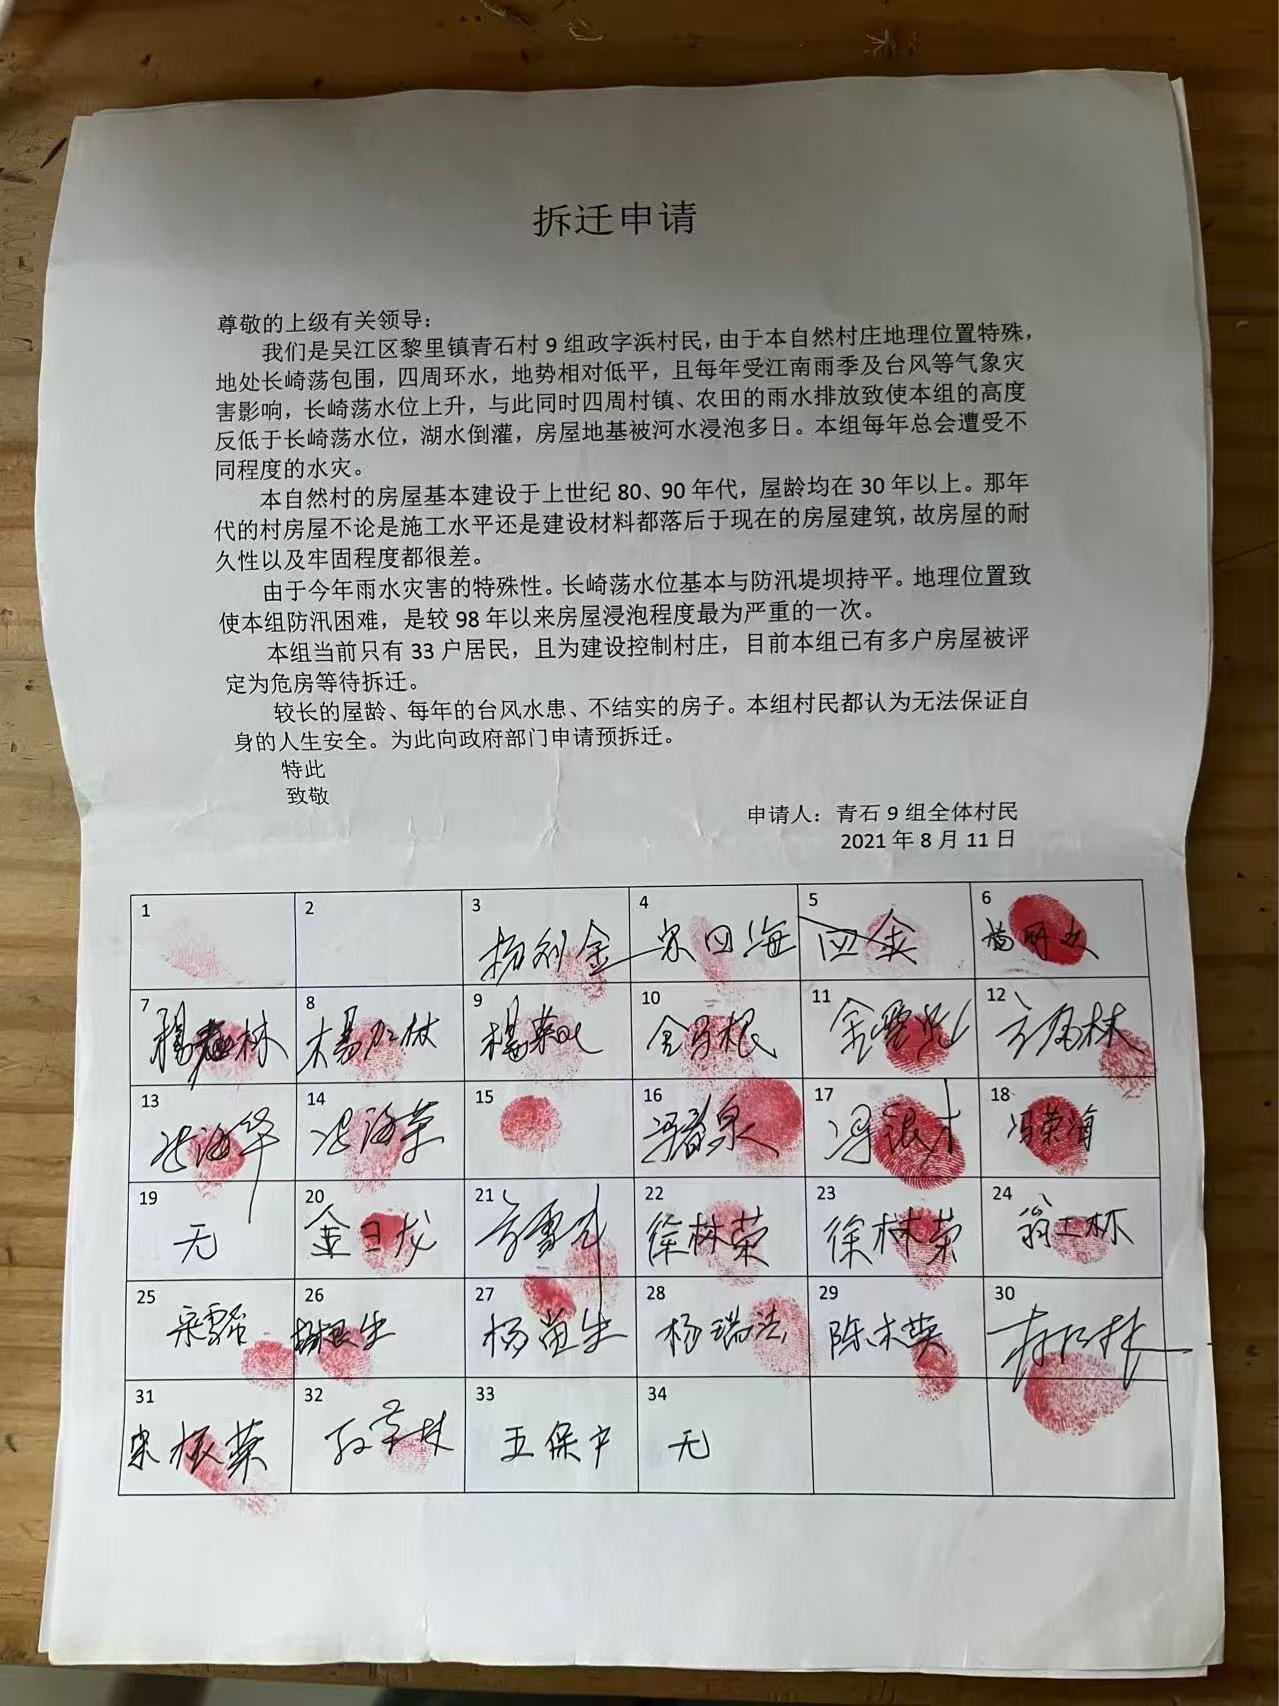 拆迁申请
尊敬的上级有关领导：
我们是吴江区黎里镇青石村 9 组政字浜村民，由于本自然村庄地理位置特殊，
地处长崎荡包围，四周环水，地势相对低平，且每年受江南雨季及台风等气象灾
害影响，长崎荡水位上升，与此同时四周村镇、农田的雨水排放致使本组的高度
反低于长崎荡水位，湖水倒灌，房屋地基被河水浸泡多日。本组每年总会遭受不
同程度的水灾。
本自然村的房屋基本建设于上世纪 80、90 年代，屋龄均在 30 年以上。那年
代的村房屋不论是施工水平还是建设材料都落后于现在的房屋建筑，故房屋的耐
久性以及牢固程度都很差。
由于今年雨水灾害的特殊性。长崎荡水位基本与防汛堤坝持平。地理位置致
使本组防汛困难，是较 98 年以来房屋浸泡程度最为严重的一次。
本组当前只有 33 户居民，且为建设控制村庄，目前本组已有多户房屋被评
定为危房等待拆迁。
较长的屋龄、每年的台风水患、不结实的房子。本组村民都认为无法保证自
身的人生安全。为此向政府部门申请预拆迁。
特此
致敬
申请人：青石 9 组全体村民
2021 年 8 月 11 日
1 2 3 4 5 6
宋四海
7 8 9 10 11 12
13 14 15 16 17 18
冯银才 冯荣海
19 20 21 22 23 24
无 徐林荣 徐林荣
25 26 27 28 29 30
杨瑞法 陈木英
31 32 33 34
宋根荣 五保户 无